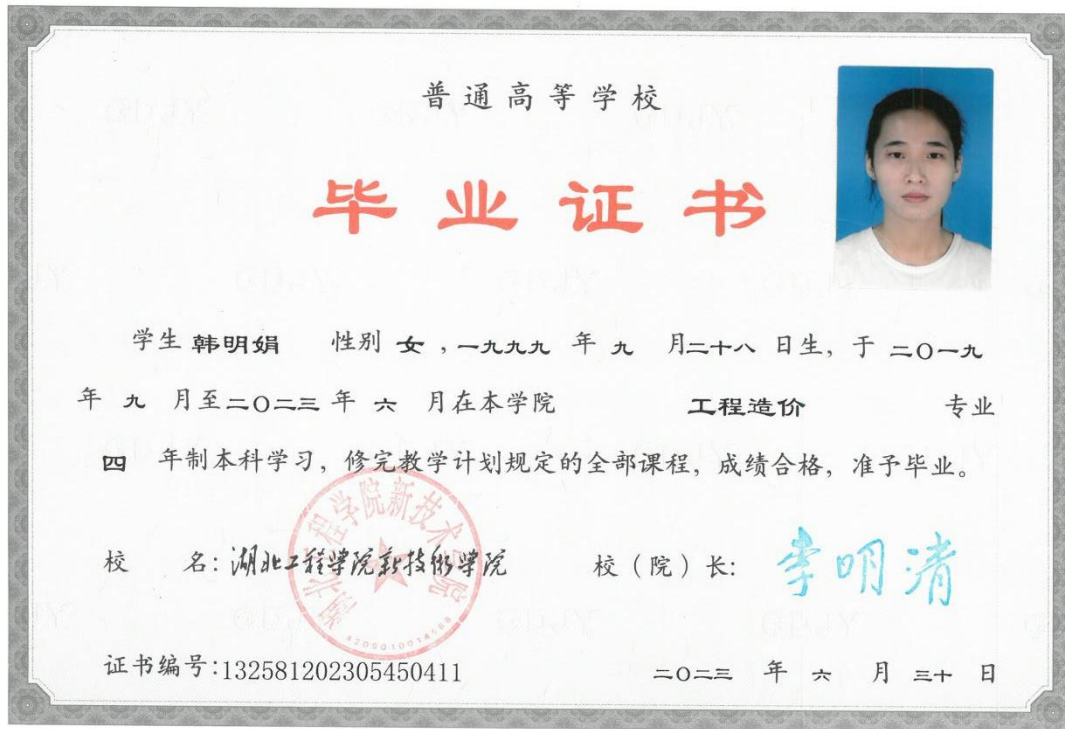 普通高等学校
毕业证书
学生 韩明娟 性别 女，一九九九 年 九 月二十八 日生，于 二〇一九
年 九 月至二〇二三 年 六 月在本学院 工程造价 专业
四 年制本科学习，修完教学计划规定的全部课程，成绩合格，准予毕业。
湖北工程学院新技术学院
校 名：湖北工程学院新技术学院 校（院）长：李明清
证书编号：132581202305450411 二〇二三 年 六 月 三十 日